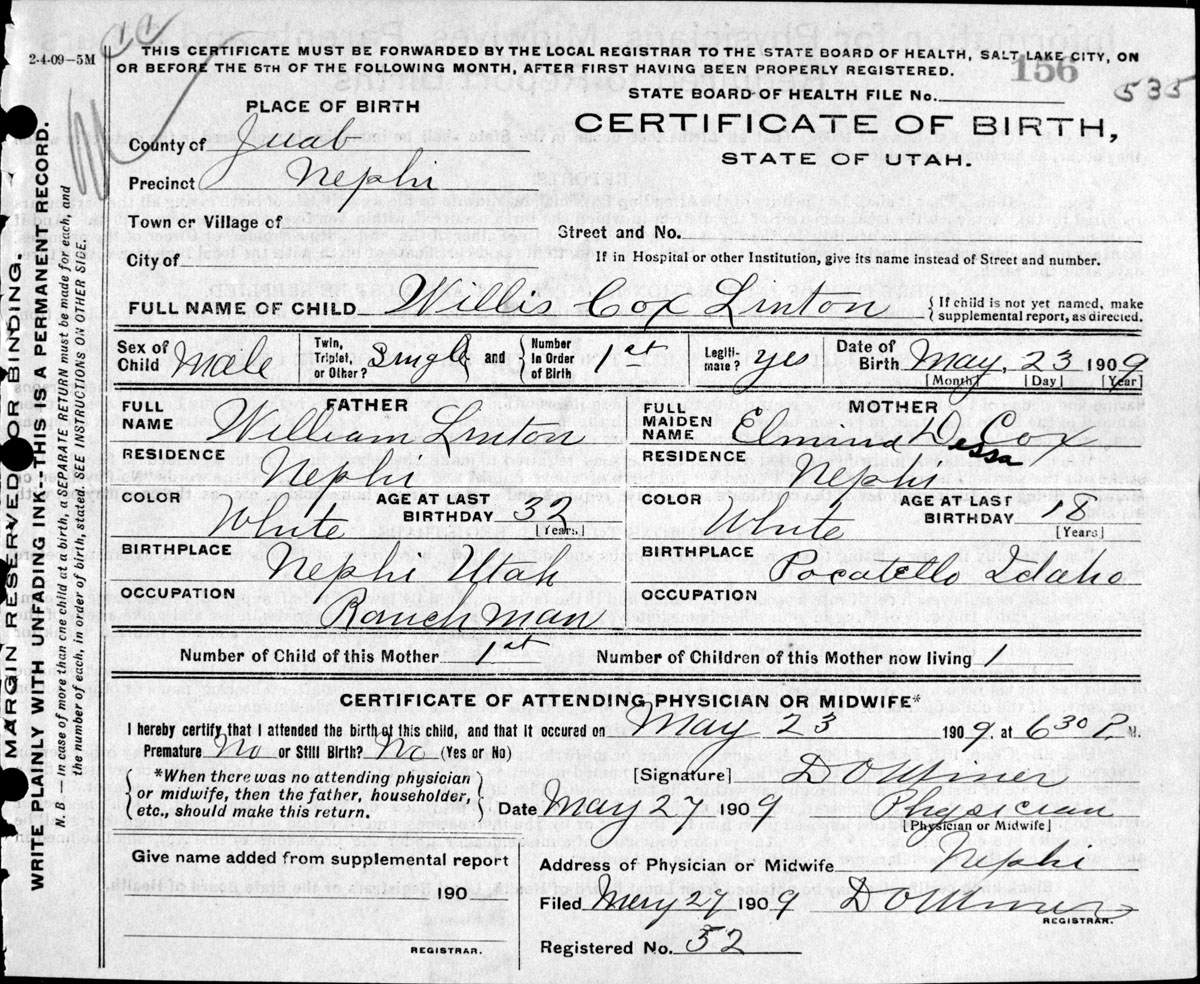 2-4-09-5M
THIS CERTIFICATE MUST BE FORWARDED BY THE LOCAL REGISTRAR TO THE STATE BOARD OF HEALTH, SALT LAKE CITY, ON
OR BEFORE THE 5TH OF THE FOLLOWING MONTH, AFTER FIRST HAVING BEEN PROPERLY REGISTERED.
156
535
STATE BOARD OF HEALTH FILE No.
PLACE OF BIRTH
CERTIFICATE OF BIRTH,
STATE OF UTAH.
County of Juab
Precinct Nephi
Town or Village of
Street and No.
City of
If in Hospital or other Institution, give its name instead of Street and number.
FULL NAME OF CHILD Willis Cox Linton
{ If child is not yet named, make
supplemental report, as directed.
Sex of Child Male
Twin, Triplet, or Other? Single and { Number in Order of Birth 1st
Legiti- mate? yes
Date of Birth May, 23 1909
[Month] [Day] [Year]
FATHER
FULL NAME William Linton
RESIDENCE Nephi
COLOR White
AGE AT LAST BIRTHDAY 32
[Years]
BIRTHPLACE Nephi Utah
OCCUPATION Ranch man
MOTHER
FULL MAIDEN NAME Elmina Dessa Cox
RESIDENCE Nephi
COLOR White
AGE AT LAST BIRTHDAY 18
[Years]
BIRTHPLACE Pocatello Idaho
OCCUPATION
Number of Child of this Mother 1st
Number of Children of this Mother now living 1
CERTIFICATE OF ATTENDING PHYSICIAN OR MIDWIFE*
I hereby certify that I attended the birth of this child, and that it occured on May 23 1909, at 6 30 P. M.
Premature No or Still Birth? No (Yes or No)
{ *When there was no attending physician
or midwife, then the father, householder,
etc., should make this return. }
[Signature]
Date May 27 1909
Physician
[Physician or Midwife]
Give name added from supplemental report
190
REGISTRAR.
Address of Physician or Midwife Nephi
Filed May 27 1909
REGISTRAR.
Registered No. 52
MARGIN RESERVED FOR BINDING.
WRITE PLAINLY WITH UNFADING INK--THIS IS A PERMANENT RECORD.
N. B.—In case of more than one child at a birth, a SEPARATE RETURN must be made for each, and
the number of each, in order of birth, stated. SEE INSTRUCTIONS ON OTHER SIDE.